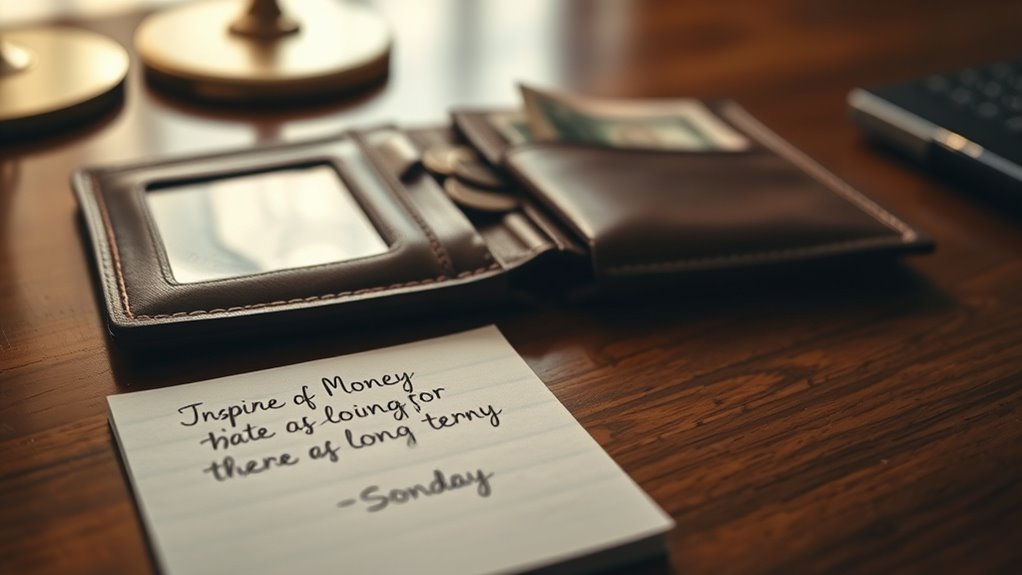 Inspine of Money
hiate as loining for
there as long terny
-Sonday